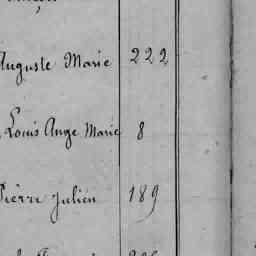 Auguste Marie 222
Louis Ange Marie 8
Pierre Julien 189